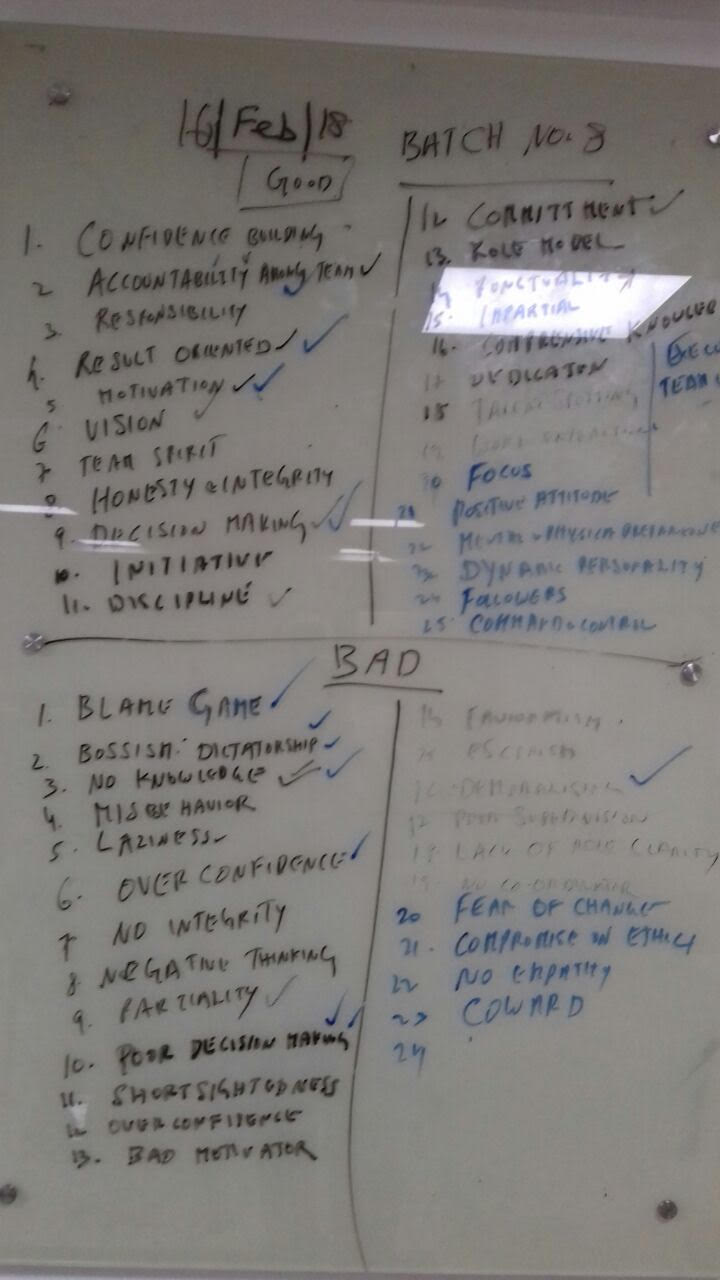 16/Feb/18
BATCH NO. 8
GOOD
1. CONFIDENCE BUILDING
2 ACCOUNTABILITY AMONG TEAM
3. RESPONSIBILITY
4. RESULT ORIENTED
5 MOTIVATION
6 VISION
7 TEAM SPIRIT
8 HONESTY & INTEGRITY
9. DECISION MAKING
10. INITIATIVE
11. DISCIPLINE
12 COMMITTMENT
13. ROLE MODEL
14 PUNCTUALITY
15. IMPARTIAL
16.
17 DEDICATON
18 TALENT SPOTTING
19
20 FOCUS
21 POSITIVE ATTITUDE
22 MENTAL & PHYSICAL
23 DYNAMIC PERSONALITY
24 FOLLOWERS
25 COMMAND & CONTROL
TEAM
BAD
1. BLAME GAME
2. BOSSISM. DICTATORSHIP
3. NO KNOWLEDGE
4. MISBEHAVIOR
5. LAZINESS
6. OVER CONFIDENCE
7 NO INTEGRITY
8 NEGATIVE THINKING
9. PARTIALITY
10. POOR DECISION MAKING
11. SHORTSIGHTEDNESS
12 OVER CONFIDENCE
13. BAD MOTIVATOR
16 DEMORALISING
17 POOR SUPERVISION
18 LACK OF ROLE CLARITY
19
20 FEAR OF CHANGE
21. COMPROMISE ON ETHICS
22 NO EMPATHY
23 COWARD
24